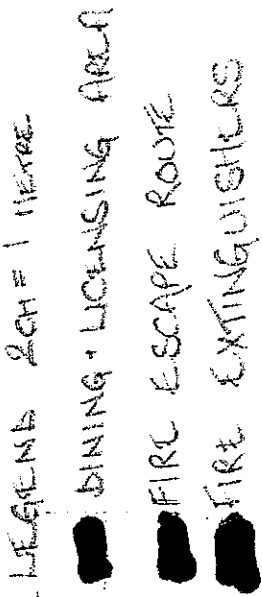 LEGEND 2CM = 1 METRE
DINING + LICENSING AREA
FIRE ESCAPE ROUTE
FIRE EXTINGUISHERS